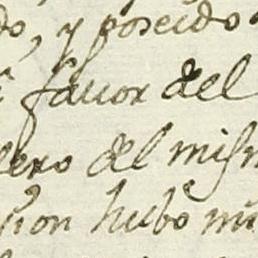 do, y poseido
favor del
dero del mism
hubo